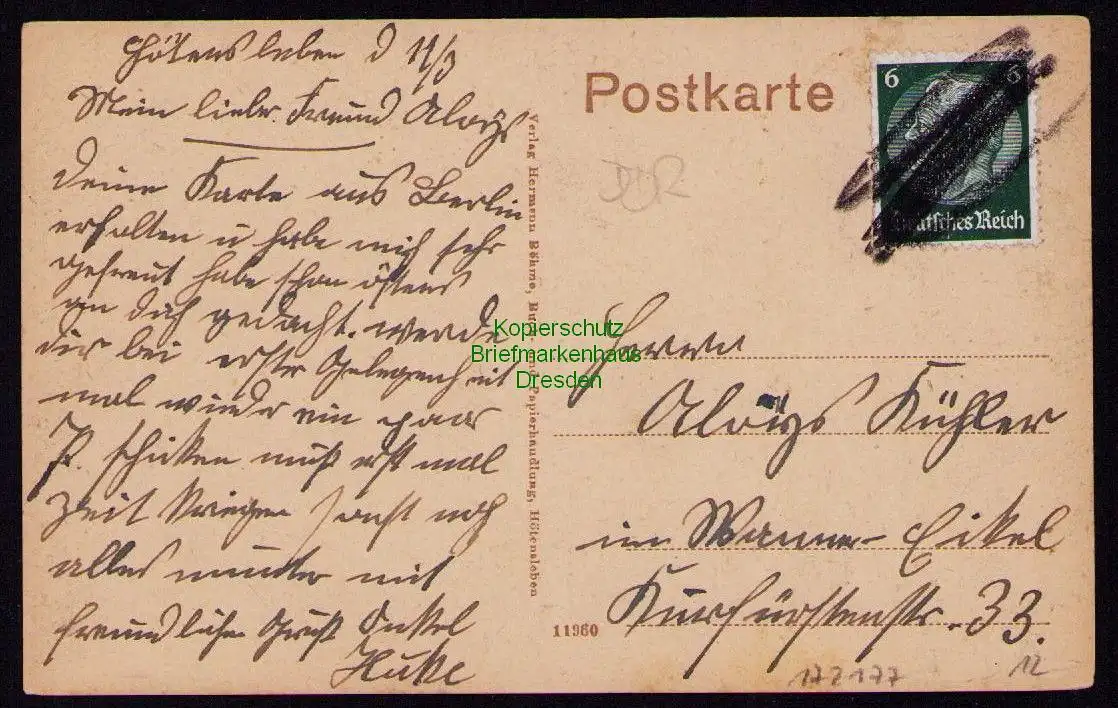 Hötensleben d 11/3
Mein lieber Freund Aloÿs
Deine Karte aus Berlin
erhalten u habe mich sehr
gefreut habe schon öfters
an dich gedacht. werde
dir bei erster Gelegenheit
mal wieder ein paar
P. schicken muß erst mal
Zeit kriegen sonst noch
alles munter mit
freundlichen Gruß Onkel
Huke
Verlag Hermann Böhme, Buch- und Papierhandlung, Hötensleben
11960
Postkarte
DDR
6 6
Deutsches Reich
Kopierschutz
Briefmarkenhaus
Dresden
Herrn
Aloÿs Kühler
in Wanne-Eikel
Kurfürstenstr. 33.
172177
12